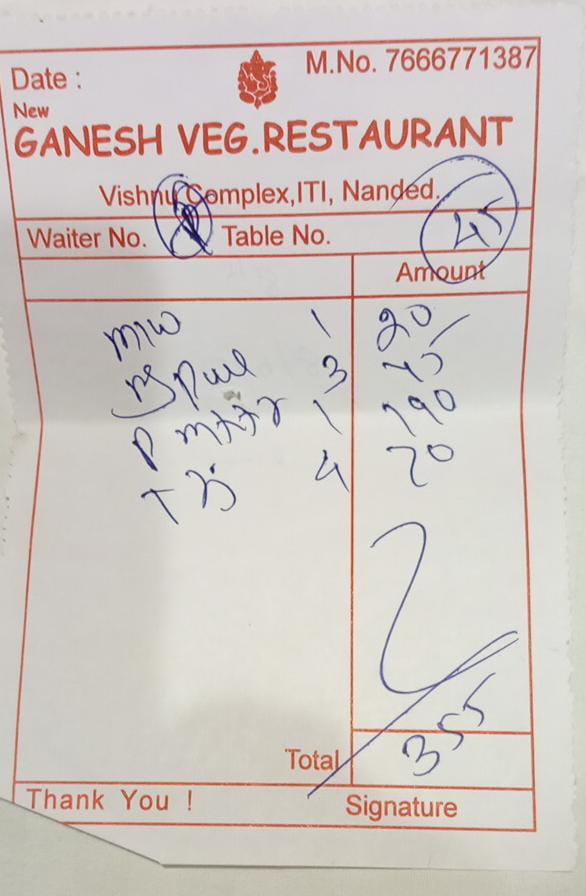 Date : M.No. 7666771387
New
GANESH VEG.RESTAURANT
Vishnu Complex,ITI, Nanded.
Waiter No. Table No. 45
Amount
m/w 1 20/
3 45
P 1 190
T 4 70
Total 355
Thank You ! Signature